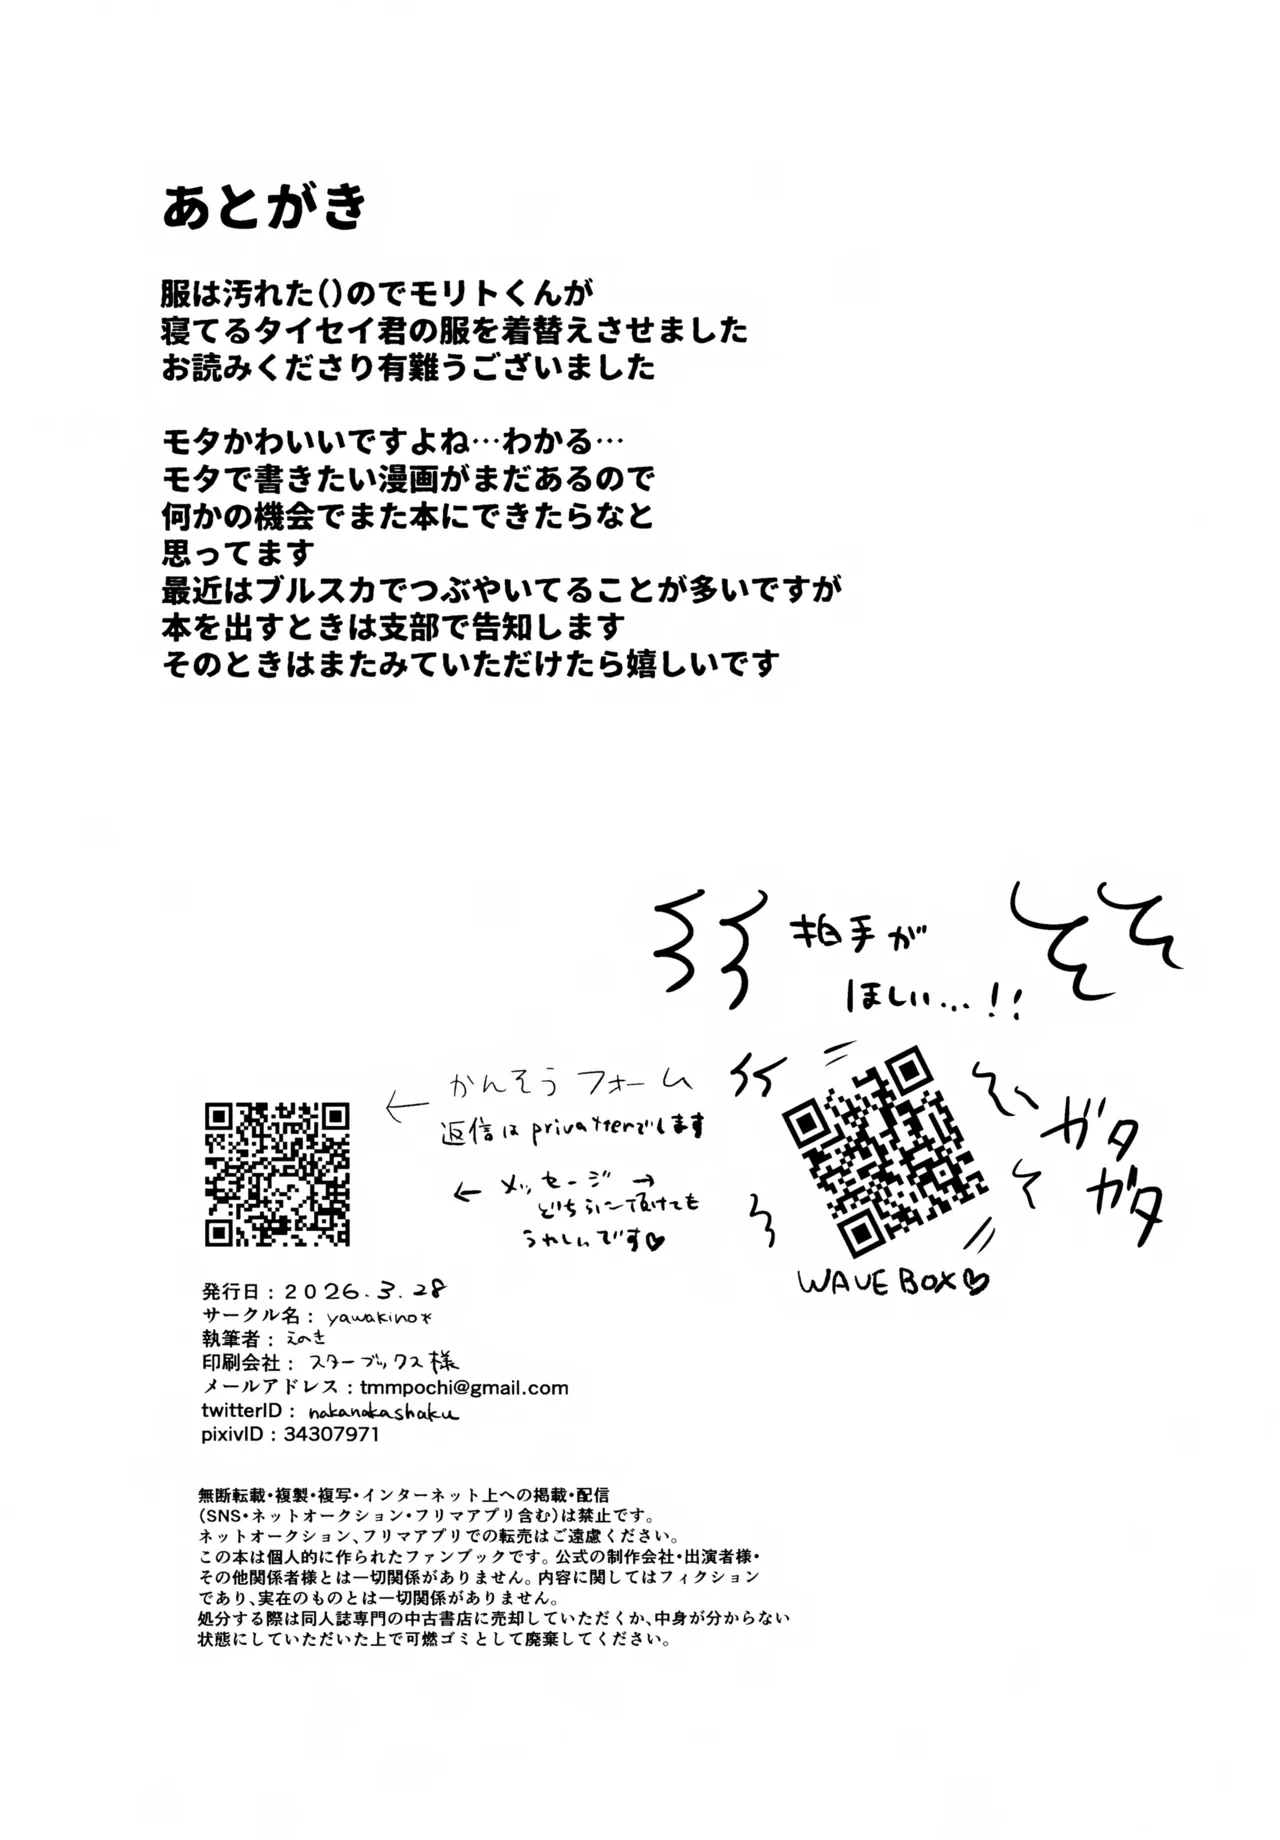 あとがき
服は汚れた()のでモリトくんが
寝てるタイセイ君の服を着替えさせました
お読みくださり有難うございました
モタかわいいですよね…わかる…
モタで書きたい漫画がまだあるので
何かの機会でまた本にできたらなと
思ってます
最近はブルスカでつぶやいてることが多いですが
本を出すときは支部で告知します
そのときはまたみていただけたら嬉しいです
拍手が
ほしい…!!
← かんそうフォーム
返信はprivatterでします
← メッセージ →
どちらに頂けても
うれしいです♡
ガタ
ガタ
WAVEBOX♡
発行日：2026.3.28
サークル名：yawakino*
執筆者：えのき
印刷会社：スターブックス様
メールアドレス：tmmpochi@gmail.com
twitterID：nakanakashaku
pixivID：34307971
無断転載・複製・複写・インターネット上への掲載・配信
(SNS・ネットオークション・フリマアプリ含む)は禁止です。
ネットオークション、フリマアプリでの転売はご遠慮ください。
この本は個人的に作られたファンブックです。公式の制作会社・出演者様・
その他関係者様とは一切関係がありません。内容に関してはフィクション
であり、実在のものとは一切関係がありません。
処分する際は同人誌専門の中古書店に売却していただくか、中身が分からない
状態にしていただいた上で可燃ゴミとして廃棄してください。